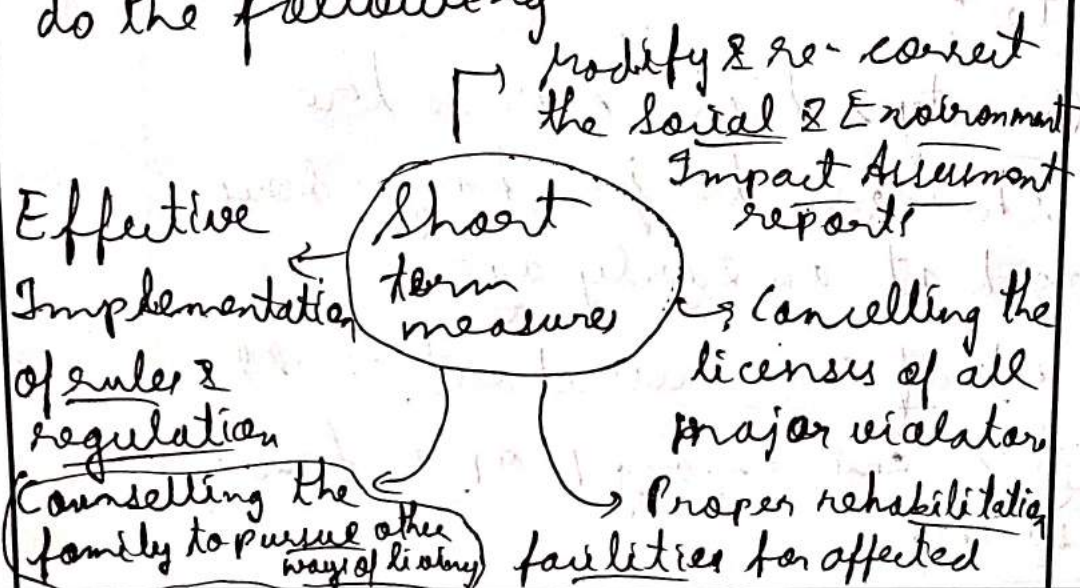 do the following
modify & re-correct
the Social & Environment
Impact Assessment
reports
Effective
Implementation
of rules &
regulation
Short
term
measures
Cancelling the
licenses of all
major violators
Counselling the
family to pursue other
ways of living
Proper rehabilitation
facilities for affected